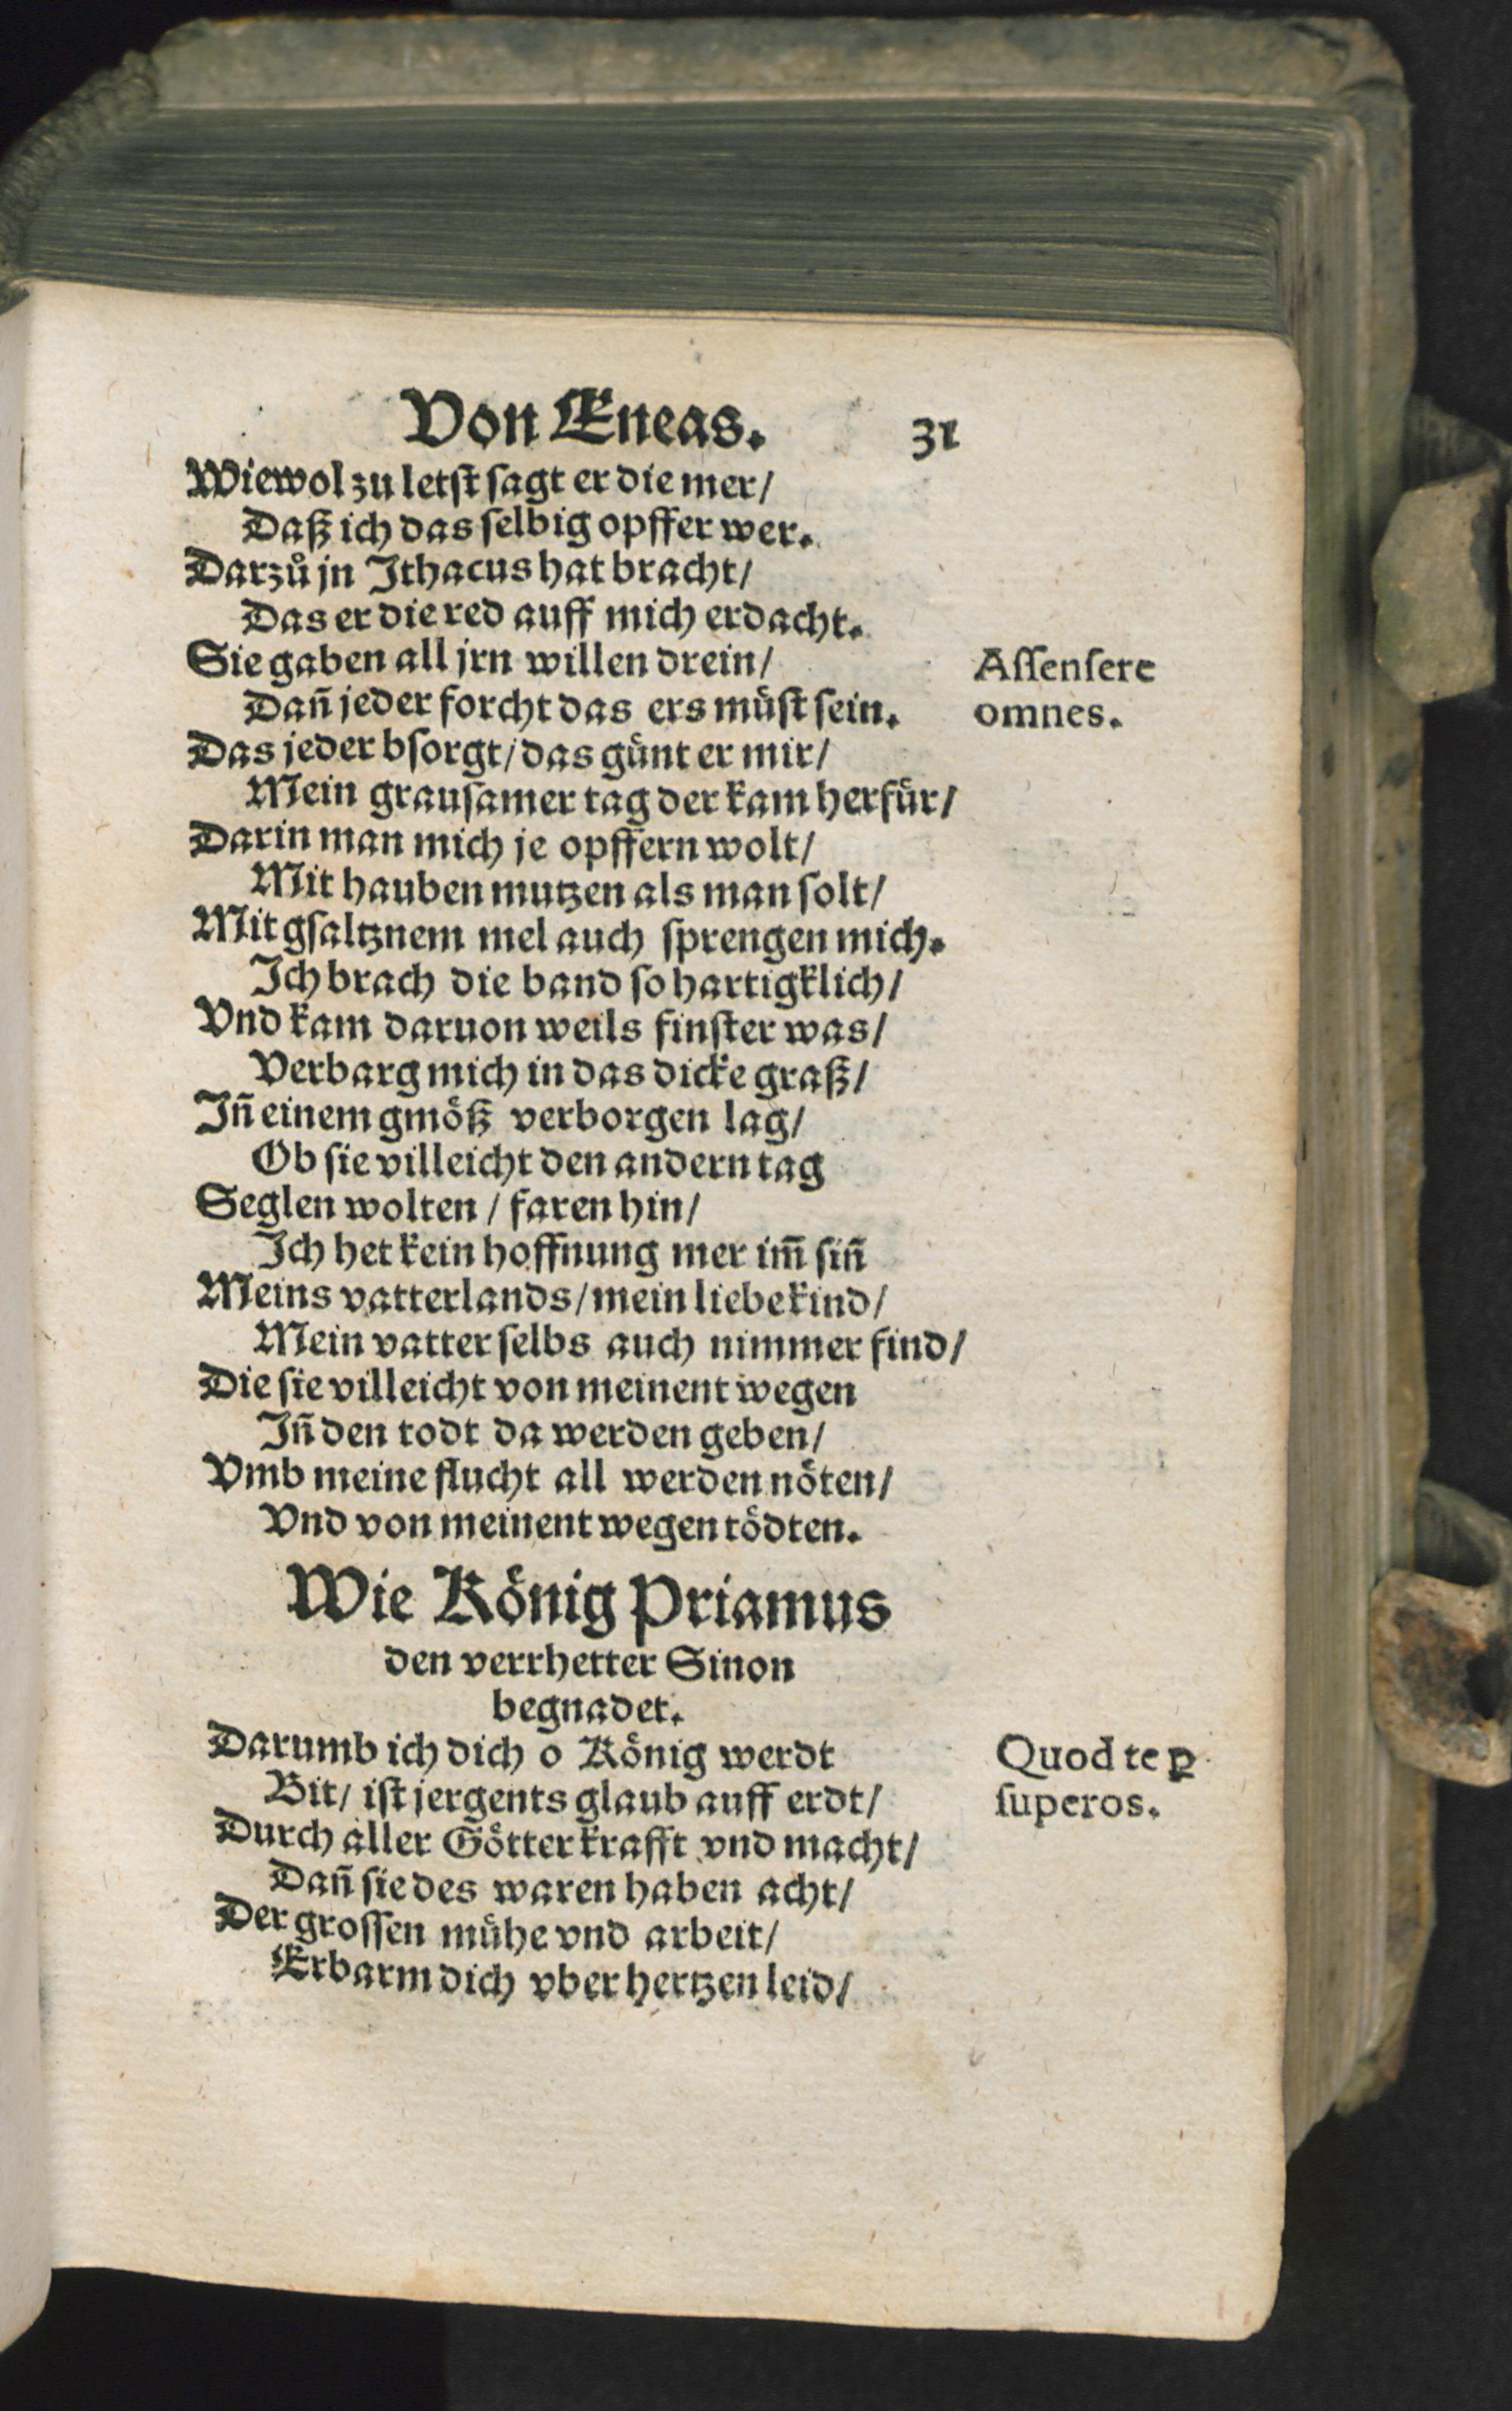 Von Æneas. 31
Wiewol zu letst sagt er die mer/
Daß ich das selbig opffer wer.
Darzů jn Ithacus hat bracht/
Das er die red auff mich erdacht.
Sie gaben all jrn willen drein/
Assensere
Dañ jeder forcht das ers můst sein.
omnes.
Das jeder bsorgt/ das günt er mir/
Mein grausamer tag der kam herfür/
Darin man mich je opffern wolt/
Mit hauben mutzen als man solt/
Mit gsaltznem mel auch sprengen mich.
Ich brach die band so hartigklich/
Vnd kam daruon weils finster was/
Verbarg mich in das dicke graß/
Iñ einem gmöß verborgen lag/
Ob sie villeicht den andern tag
Seglen wolten / faren hin/
Ich het kein hoffnung mer im̃ siñ
Meins vatterlands/ mein liebe kind/
Mein vatter selbs auch nimmer find/
Die sie villeicht von meinent wegen
Iñ den todt da werden geben/
Vmb meine flucht all werden nöten/
Vnd von meinent wegen tödten.
Wie König Priamus
den verrhetter Sinon
begnadet.
Darumb ich dich o König werdt
Quod te ꝑ
Bit/ ist jergents glaub auff erdt/
superos.
Durch aller Götter krafft vnd macht/
Dañ sie des waren haben acht/
Der grossen mühe vnd arbeit/
Erbarm dich vber hertzen leid/